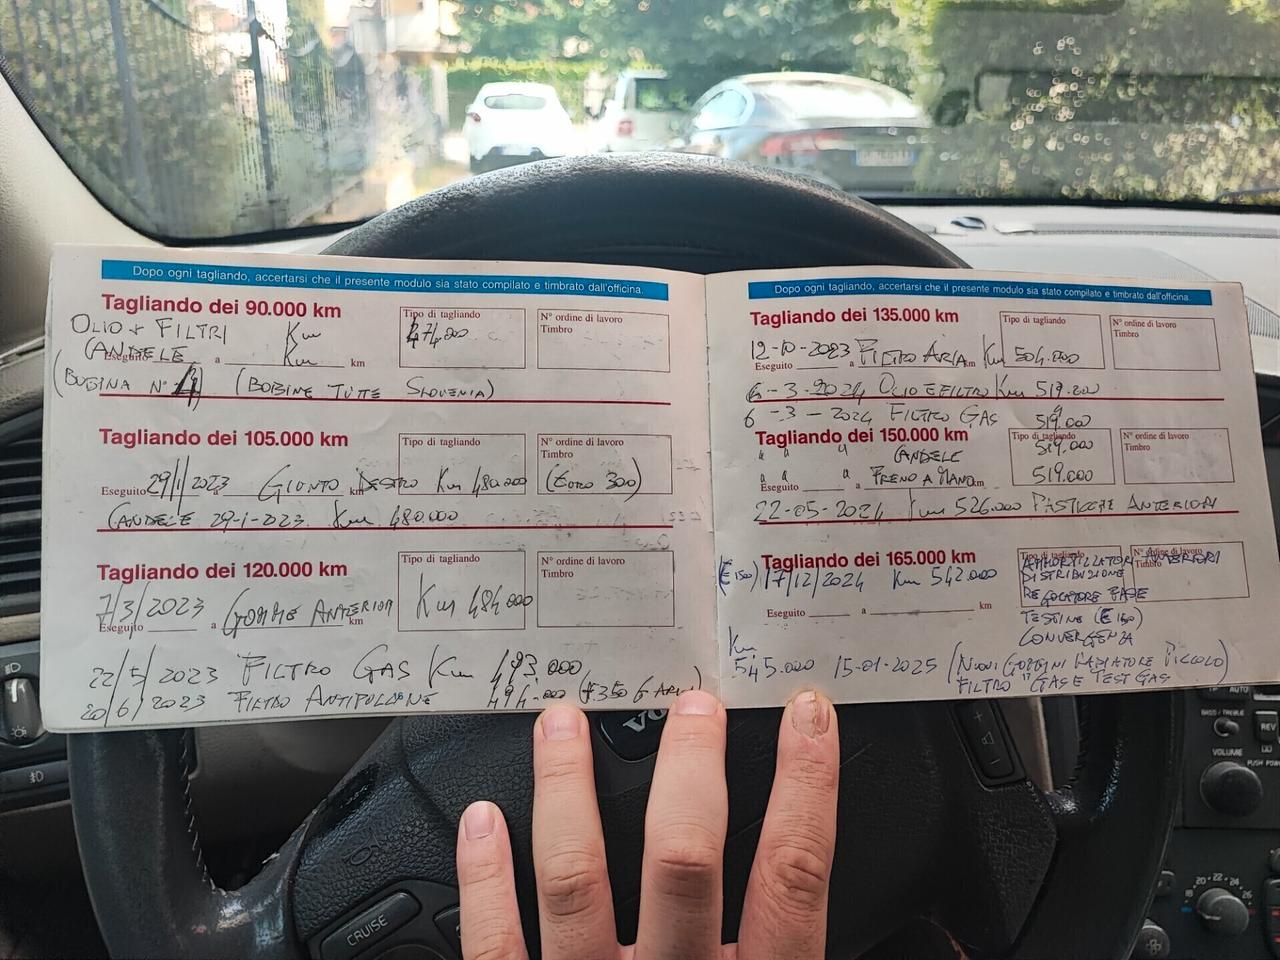 Dopo ogni tagliando, accertarsi che il presente modulo sia stato compilato e timbrato dall'officina.
Tagliando dei 90.000 km
Tipo di tagliando
N° ordine di lavoro
Timbro
OLIO + FILTRI Km 474.000
CANDELE Km
Eseguito a km
(BOBINA N° 4) (BOBINE TUTTE SLOVENIA)
Tagliando dei 105.000 km
Tipo di tagliando
N° ordine di lavoro
Timbro
Eseguito 29/1/2023 GIUNTO DESTRO Km 480000 (EURO 300)
CANDELE 29-1-2023 Km 480000
Tagliando dei 120.000 km
Tipo di tagliando
N° ordine di lavoro
Timbro
7/3/2023 GOMME ANTERIORI Km 484000
Eseguito a km
22/5/2023 FILTRO GAS Km 493.000
20/6/2023 FILTRO ANTIPOLLINE 494.000
Dopo ogni tagliando, accertarsi che il presente modulo sia stato compilato e timbrato dall'officina.
Tagliando dei 135.000 km
Tipo di tagliando
N° ordine di lavoro
Timbro
12-10-2023 FILTRO ARIA Km 504.000
Eseguito a km
6-3-2024 OLIO E FILTRO Km 519.200
6-3-2024 FILTRO GAS 519.000
Tagliando dei 150.000 km
Tipo di tagliando
N° ordine di lavoro
Timbro
" " " CANDELE 519.000
" " " FRENO A MANO 519.000
Eseguito a km
22-05-2024 Km 526.000 PASTICCHE ANTERIORI
Tagliando dei 165.000 km
Tipo di tagliando
N° ordine di lavoro
Timbro
17/12/2024 Km 542.000 AMMORTIZZATORI ANTERIORI
DISTRIBUZIONE
REGOLATORE FASE
Eseguito a km
TESTINE (€ 150)
CONVERGENZA
Km
545.000 15-01-2025 (NUOVI GOMMINI RADIATORE PICCOLO)
FILTRO GAS E TEST GAS
CRUISE
AUTO
BASS/TREBLE
REV
VOLUME
PUSH
18 20 22 24 26